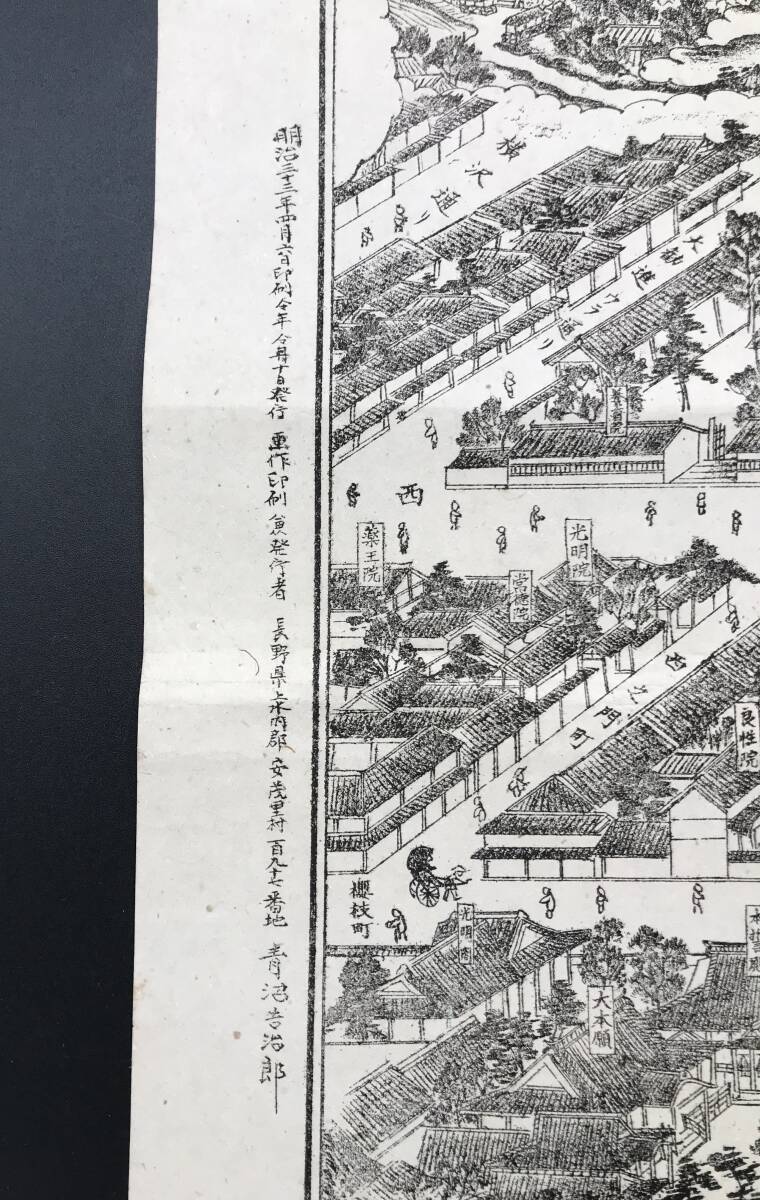 明治三十三年四月六日印刷仝年仝月十日発行 画作印刷兼発行者 長野県上水内郡安茂里村百九十七番地 青沼吉治郎
横沢通り
大勧進ウラ通り
西
薬王院
常徳院
光明院
西之門町
良性院
櫻枝町
大本願